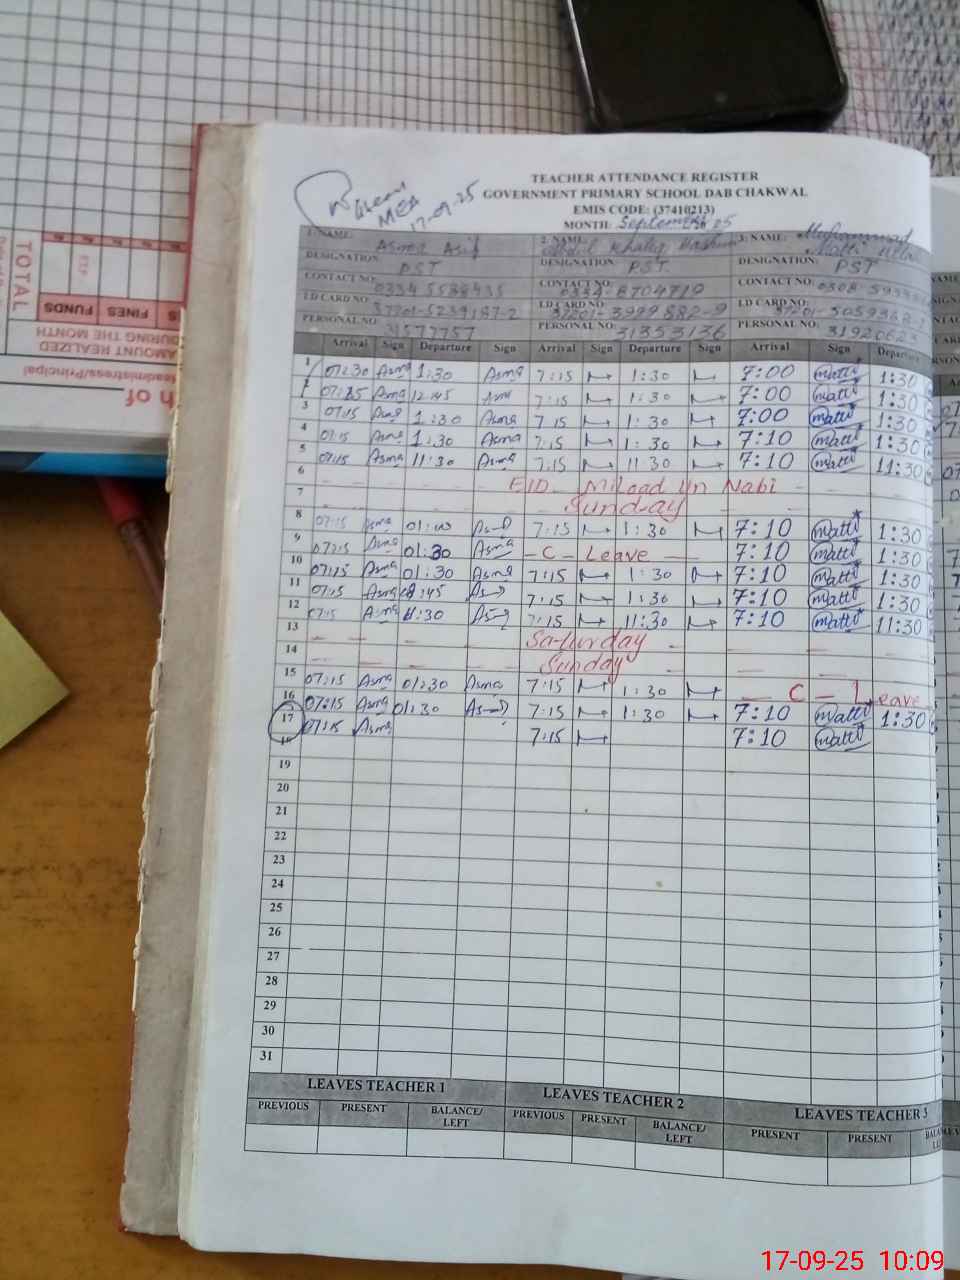 TEACHER ATTENDANCE REGISTER
GOVERNMENT PRIMARY SCHOOL DAB CHAKWAL
EMIS CODE: (37410213)
MONTH: September 25
MEA
17-09-25
1. NAME: Asma Asif 2. NAME: Abdul Khaliq Hashmi 3. NAME: Muhammad
DESIGNATION: PST DESIGNATION: PST DESIGNATION: PST
CONTACT NO: CONTACT NO: 0334 8704719 CONTACT NO: 0308
I.D CARD NO: 37201-5239187-2 I.D CARD NO: 37201-3999882-9 I.D CARD NO: 37201-
PERSONAL NO: 31577757 PERSONAL NO: 31353136 PERSONAL NO: 3192062
Arrival Sign Departure Sign Arrival Sign Departure Sign Arrival Sign Departure
1 07:30 Asma 1:30 Asma 7:15 1:30 7:00 Matti 1:30
2 Asma 12:45 Asma 7:15 1:30 7:00 Matti 1:30
3 07:15 Asma 1:30 Asma 7:15 1:30 7:00 Matti 1:30
4 07:15 Asma 1:30 Asma 7:15 1:30 7:10 Matti 1:30
5 07:15 Asma 11:30 Asma 7:15 11:30 7:10 Matti 11:30
6 EID Milaad Un Nabi
7 Sunday
8 07:15 Asma 7:15 1:30 7:10 Matti 1:30
9 07:15 Asma 01:30 Asma - C - Leave 7:10 Matti 1:30
10 07:15 Asma 01:30 Asma 7:15 1:30 7:10 Matti 1:30
11 07:15 Asma 7:15 1:30 7:10 Matti 1:30
12 07:15 Asma 7:15 11:30 7:10 Matti 11:30
13 Saturday
14 Sunday
15 07:15 Asma 01:30 Asma 7:15 1:30 C - Leave
16 07:15 Asma 01:30 7:15 1:30 7:10 Matti 1:30
17 07:15 Asma 7:15 7:10 Matti
18
19
20
21
22
23
24
25
26
27
28
29
30
31
LEAVES TEACHER 1 LEAVES TEACHER 2 LEAVES TEACHER 3
PREVIOUS PRESENT BALANCE/ LEFT PREVIOUS PRESENT BALANCE/ LEFT PRESENT PRESENT
TOTAL
FINES FUNDS
AMOUNT REALIZED
DURING THE MONTH
Headmistress/Principal
17-09-25 10:09